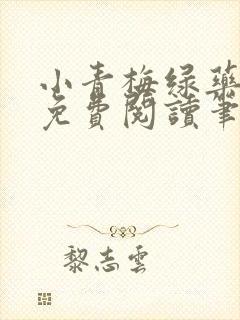 小青梅綠藥
免費閱讀筆
黎志雲